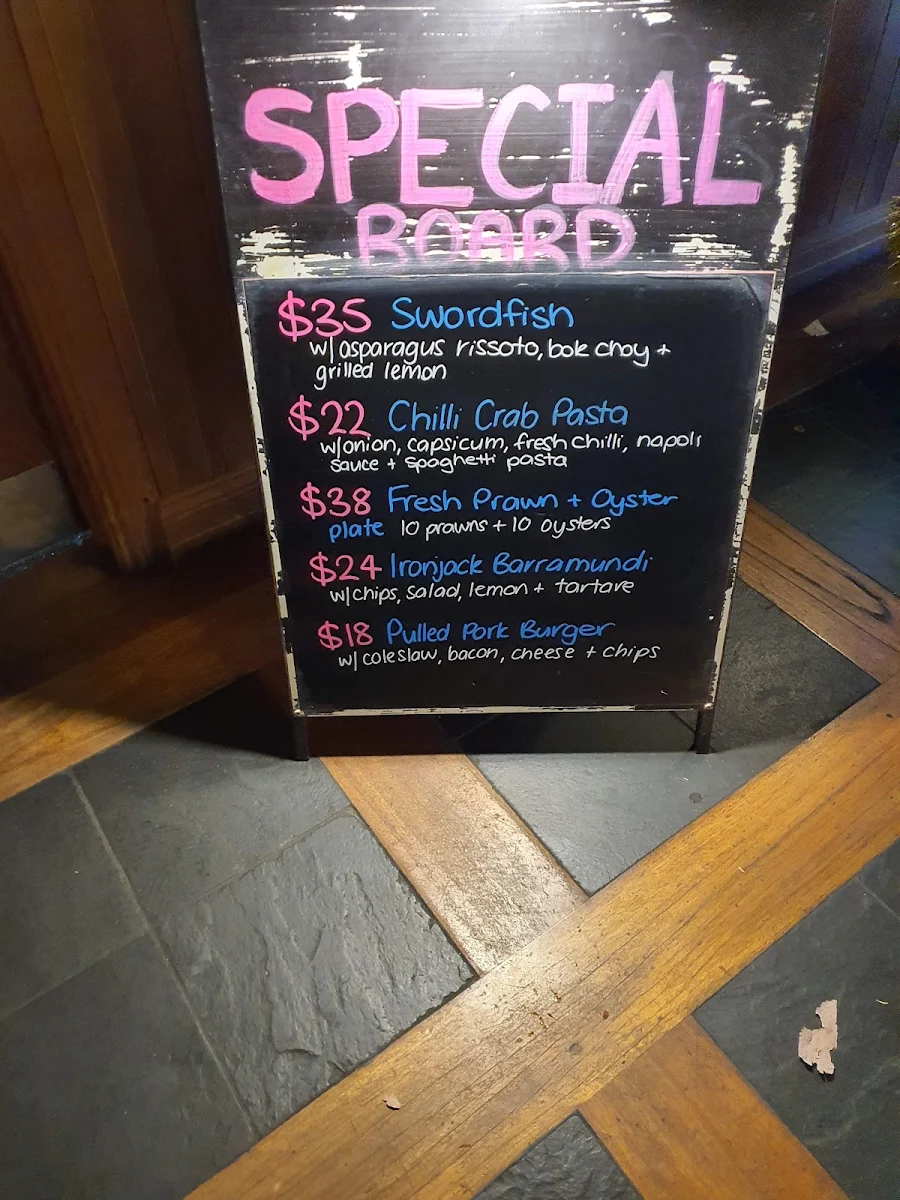 SPECIAL
BOARD
$35 Swordfish
w/ asparagus rissoto, bok choy +
grilled lemon
$22 Chilli Crab Pasta
w/onion, capsicum, fresh chilli, napoli
sauce + spaghetti pasta
$38 Fresh Prawn + Oyster
plate 10 prawns + 10 oysters
$24 Ironjack Barramundi
w/chips, salad, lemon + tartare
$18 Pulled Pork Burger
w/ coleslaw, bacon, cheese + chips